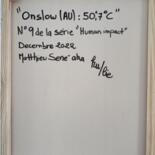 "Onslow (AU) : 50,7°C"
N°9 de la série "Human impact"
Decembre 2022
Matthieu Sene aka